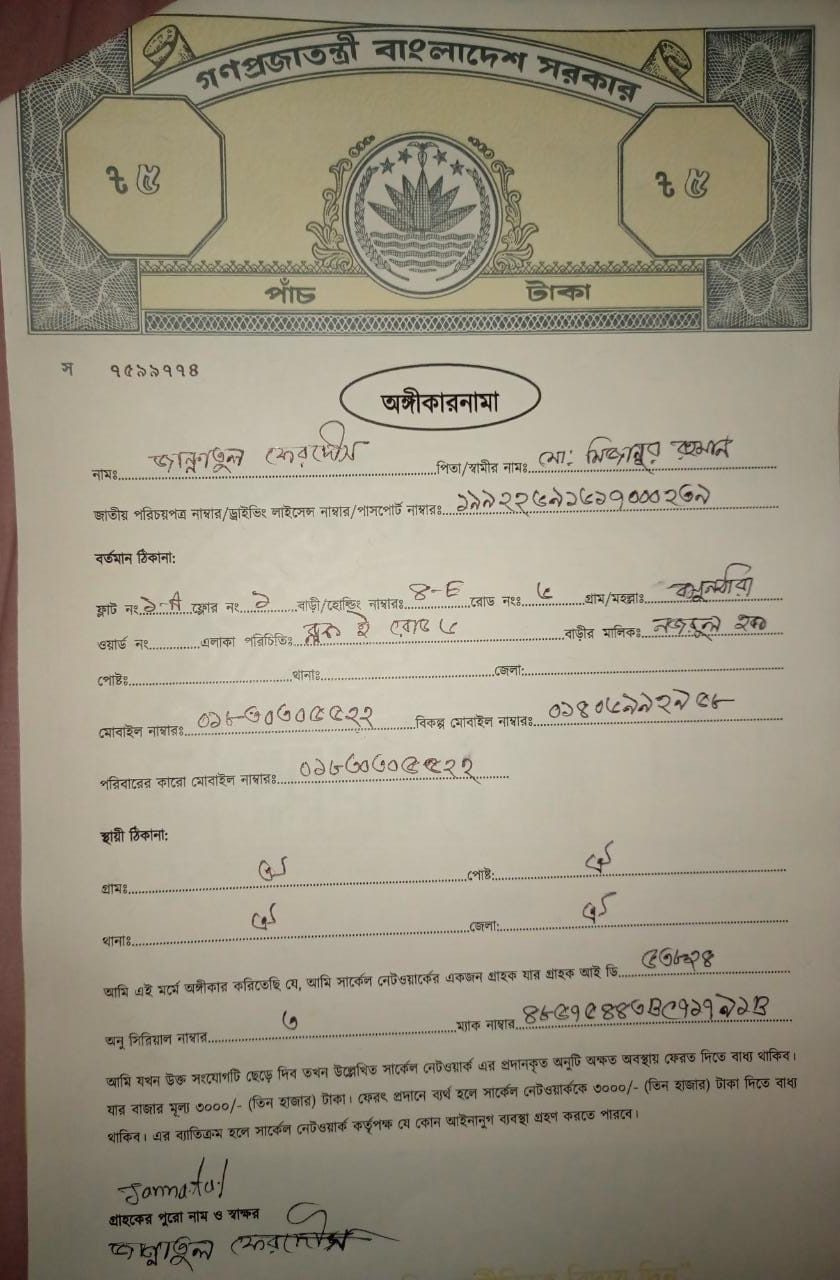 গণপ্রজাতন্ত্রী বাংলাদেশ সরকার
৳ ৫ ৳ ৫
পাঁচ টাকা
স ৭৫৯৯৭৭৪
অঙ্গীকারনামা
নামঃ জান্নাতুল ফেরদৌস পিতা/স্বামীর নামঃ মো: মিজানুর রহমান
জাতীয় পরিচয়পত্র নাম্বার/ড্রাইভিং লাইসেন্স নাম্বার/পাসপোর্ট নাম্বারঃ
বর্তমান ঠিকানা:
ফ্লাট নং ১-A ফ্লোর নং ১ বাড়ী/হোল্ডিং নাম্বারঃ ৪-E রোড নংঃ ৬ গ্রাম/মহল্লাঃ
ওয়ার্ড নং এলাকা পরিচিতিঃ ব্লক ই রোড ৬ বাড়ীর মালিকঃ নজরুল হক
পোষ্টঃ থানাঃ জেলা:
মোবাইল নাম্বারঃ ০১৮৩০৩০৫৫২২ বিকল্প মোবাইল নাম্বারঃ
পরিবারের কারো মোবাইল নাম্বারঃ ০১৮৩০৩০৫৫২২
স্থায়ী ঠিকানা:
গ্রামঃ ঐ পোষ্ট: ঐ
থানাঃ ঐ জেলা: ঐ
আমি এই মর্মে অঙ্গীকার করিতেছি যে, আমি সার্কেল নেটওয়ার্কের একজন গ্রাহক যার গ্রাহক আই ডি
অনু সিরিয়াল নাম্বার ৩ ম্যাক নাম্বার
আমি যখন উক্ত সংযোগটি ছেড়ে দিব তখন উল্লেখিত সার্কেল নেটওয়ার্ক এর প্রদানকৃত অনুটি অক্ষত অবস্থায় ফেরত দিতে বাধ্য থাকিব।
যার বাজার মূল্য ৩০০০/- (তিন হাজার) টাকা। ফেরৎ প্রদানে ব্যর্থ হলে সার্কেল নেটওয়ার্ককে ৩০০০/- (তিন হাজার) টাকা দিতে বাধ্য
থাকিব। এর ব্যতিক্রম হলে সার্কেল নেটওয়ার্ক কর্তৃপক্ষ যে কোন আইনানুগ ব্যবস্থা গ্রহণ করতে পারবে।
Jannatul
গ্রাহকের পুরো নাম ও স্বাক্ষর
জান্নাতুল ফেরদৌস